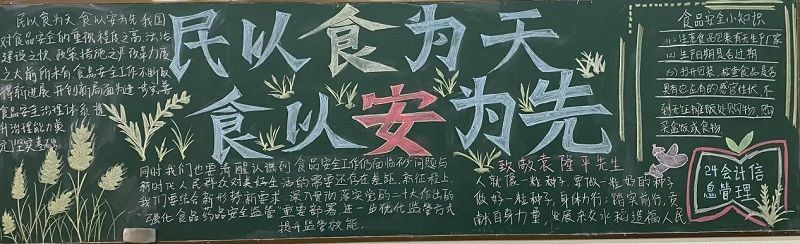 民以食为天
食以安为先
民以食为天,食以安为先,我国
对食品安全的重视程度之高,法治
建设之快,政策措施之严,改革力度
之大前所未有,食品安全工作不断取
得新进展,开创新局面,为进一步完善
食品安全治理体系,提
升治理能力奠
定了坚实基础
同时我们也要清醒认识到,食品安全工作仍面临
新时代人民群众对美好生活的需要还存在差距,新征程上,
我们要结合新形势新要求,深入贯彻落实党的二十大作出的
“强化食品药品安全监管”重要部署,进一步优化监管方式
提升监管效能.
致敬袁隆平先生
人就像一粒种子,要做一粒好的种子
做好一粒种子,身体力行,踏实前行,贡
献自身力量,发展杂交水稻造福人民
食品安全小知识
(1)注意食品包装有无生产厂家
(2)生产日期是否过期
(3)打开包装,检查食品是否
具有它应有的感官性状,不
到无证摊贩处购物,购
买盒饭或食物.
24会计信
息管理